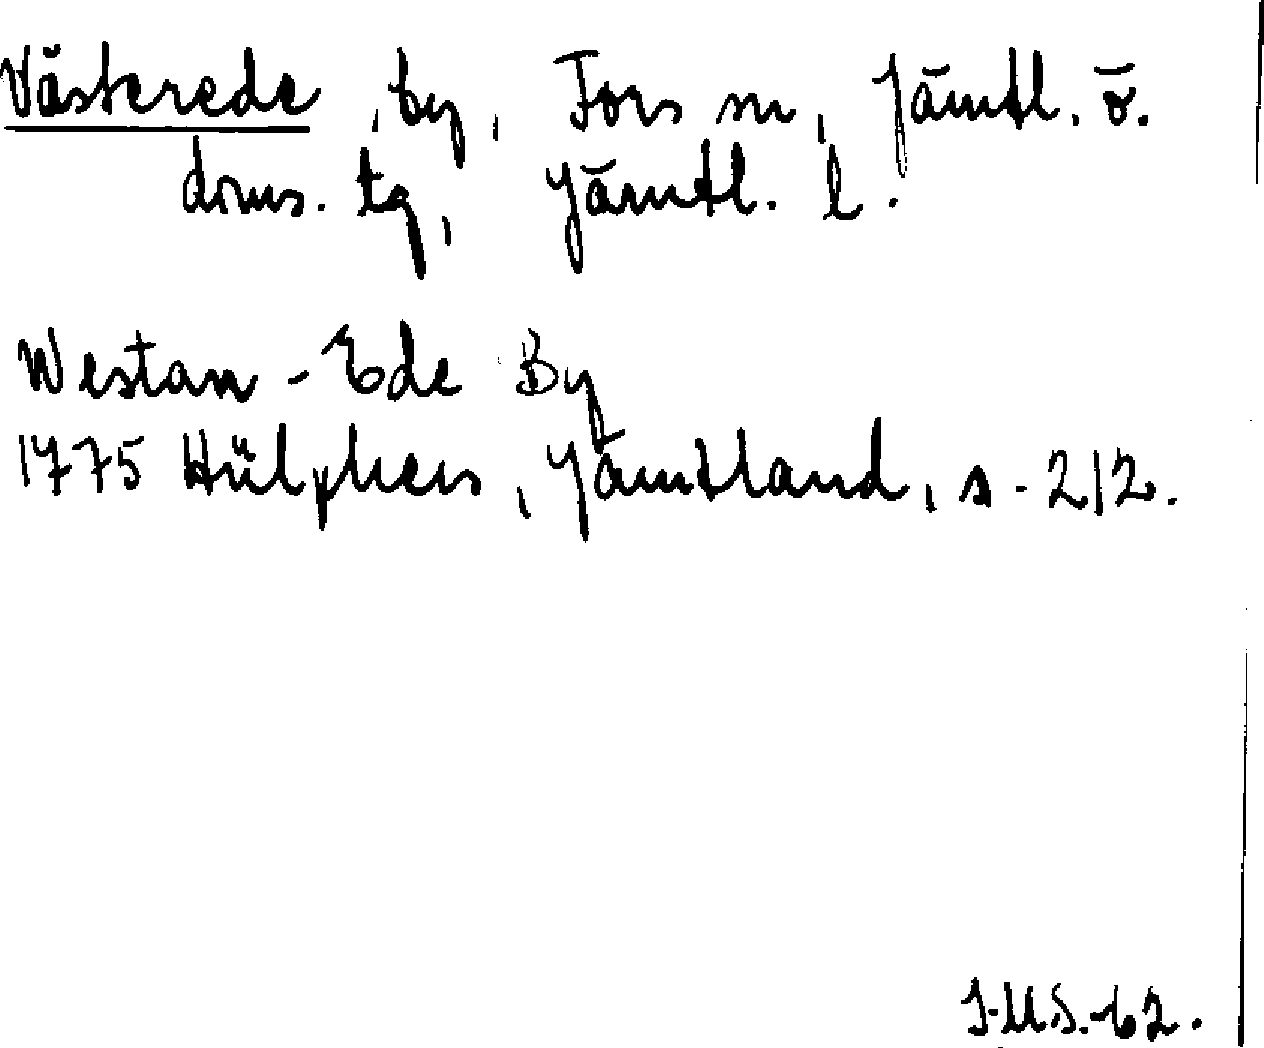 Västerede, by, Fors sn, Jämtl. ö.
doms. tg, Jämtl. l.
Westan-Ede By
1775 Hülphers, Jämtland, s. 212.
I-MS.-62.